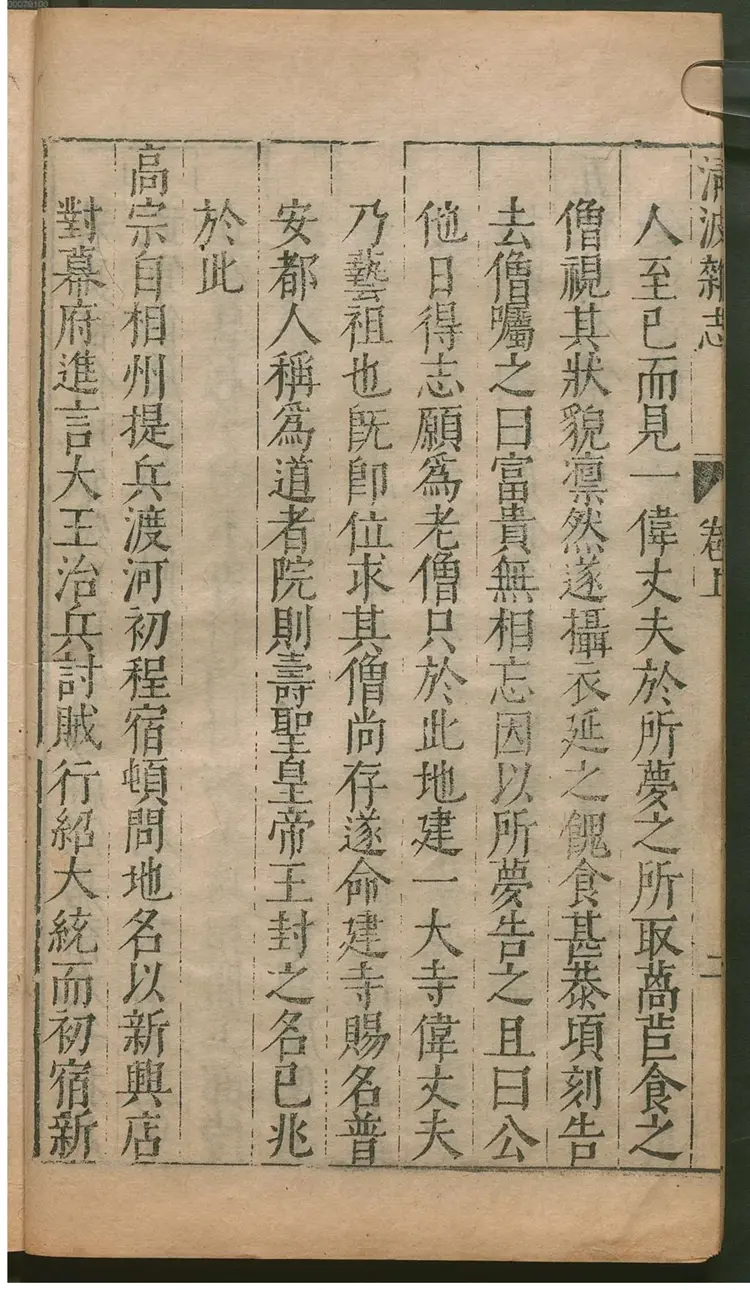 清波雜志 卷上 二
人至已而見一偉丈夫於所夢之所取萵苣食之
僧視其狀貌凛然遂攝衣延之餽食甚恭頃刻告
去僧囑之曰富貴無相忘因以所夢告之且曰公
他日得志願爲老僧只於此地建一大寺偉丈夫
乃藝祖也旣卽位求其僧尚存遂命建寺賜名普
安都人稱爲道者院則壽聖皇帝王封之名已兆
於此
高宗自相州提兵渡河初程宿頓問地名以新興店
對幕府進言大王治兵討賊行紹大統而初宿新